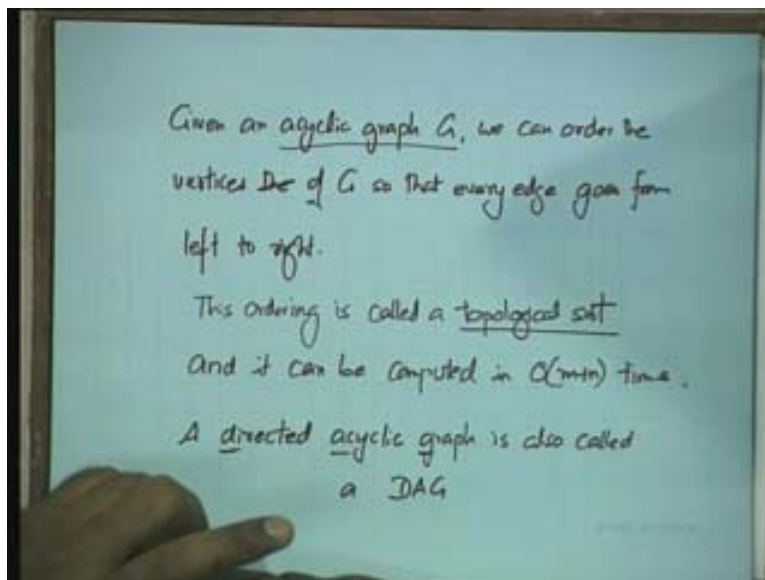 Given an acyclic graph G, we can order the
vertices of G so that every edge goes from
left to right.
This ordering is called a topological sort
And it can be computed in O(m+n) time.
A directed acyclic graph is also called
a DAG